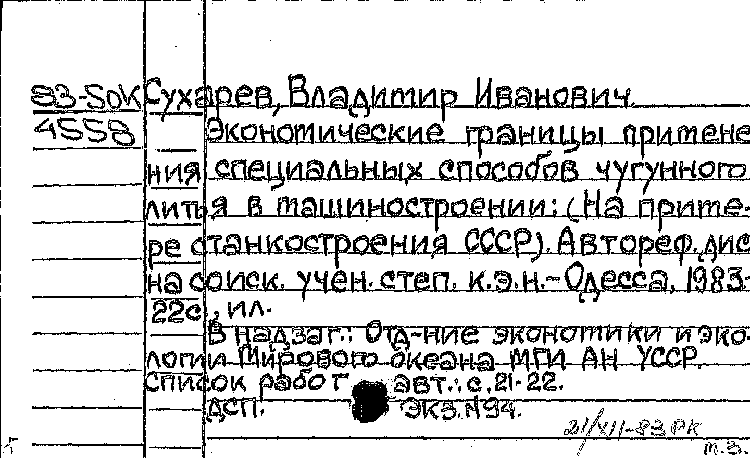 83-5ДК Сухарев, Владимир Иванович.
4558 Экономические границы примене
ния специальных способов чугунного
литья в машиностроении: (На приме-
ре станкостроения СССР). Автореф. дис
на соиск. учен. степ. к.э.н.-Одесса, 1983.-
22с., ил.
В надзаг.: Отд-ние экономики и эко-
логии Мирового океана МГИ АН УССР.
Список работ авт.: с. 21-22.
ДСП. Экз. N94.
21/XII-83 РК
т.з.